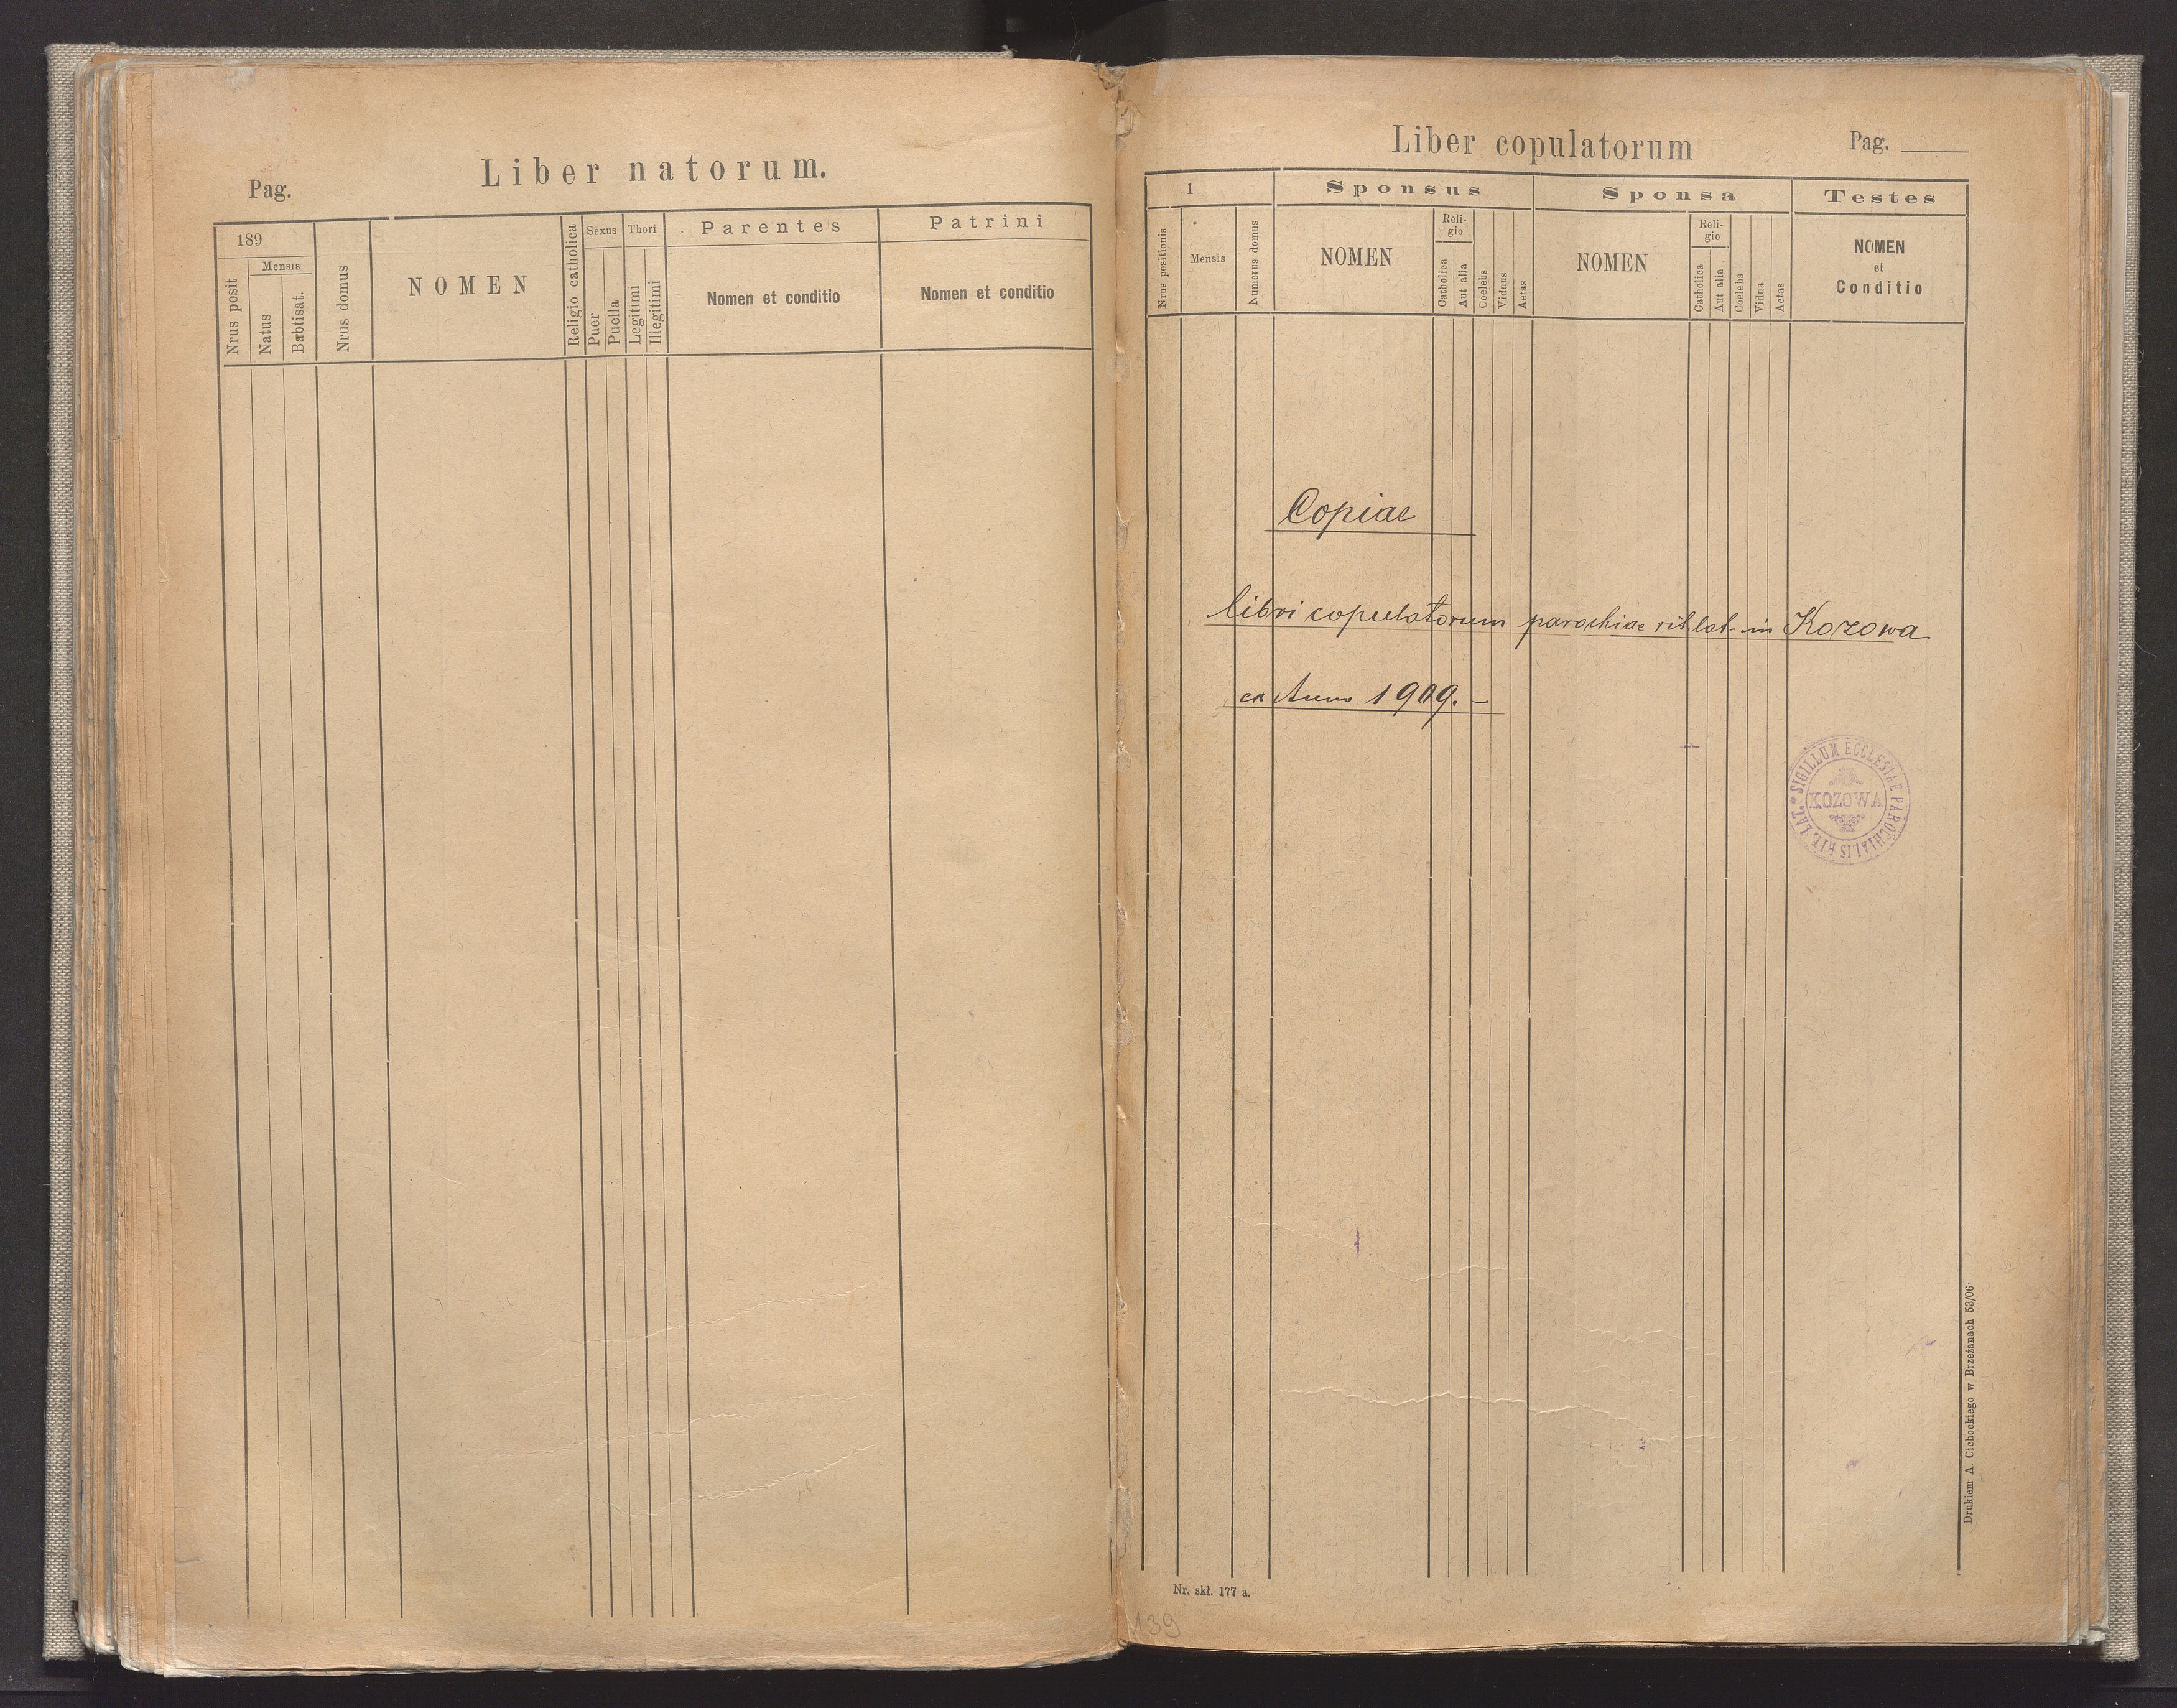 Liber natorum.
Pag.
189
Mensis
Nrus posit
Natus
Babtisat.
Nrus domus
NOMEN
Religio catholica
Sexus
Puer
Puella
Thori
Legitimi
Illegitimi
Parentes
Nomen et conditio
Patrini
Nomen et conditio
Liber copulatorum
Pag.
1
Nrus positionis
Mensis
Numerus domus
Sponsus
NOMEN
Reli-
gio
Catholica
Aut alia
Coelebs
Viduus
Aetas
Sponsa
NOMEN
Reli-
gio
Catholica
Aut alia
Coelebs
Vidua
Aetas
Testes
NOMEN
et
Conditio
Copiae
libri copulatorum parochiae rit. lat. in Kozowa
ex Anno 1909.-
SIGILLUM ECCLESIAE PAROCHIALIS RIT. LAT.
KOZOWA
Drukiem A. Cichockiego w Brzeżanach 53/06.
Nr. skł. 177 a.
139